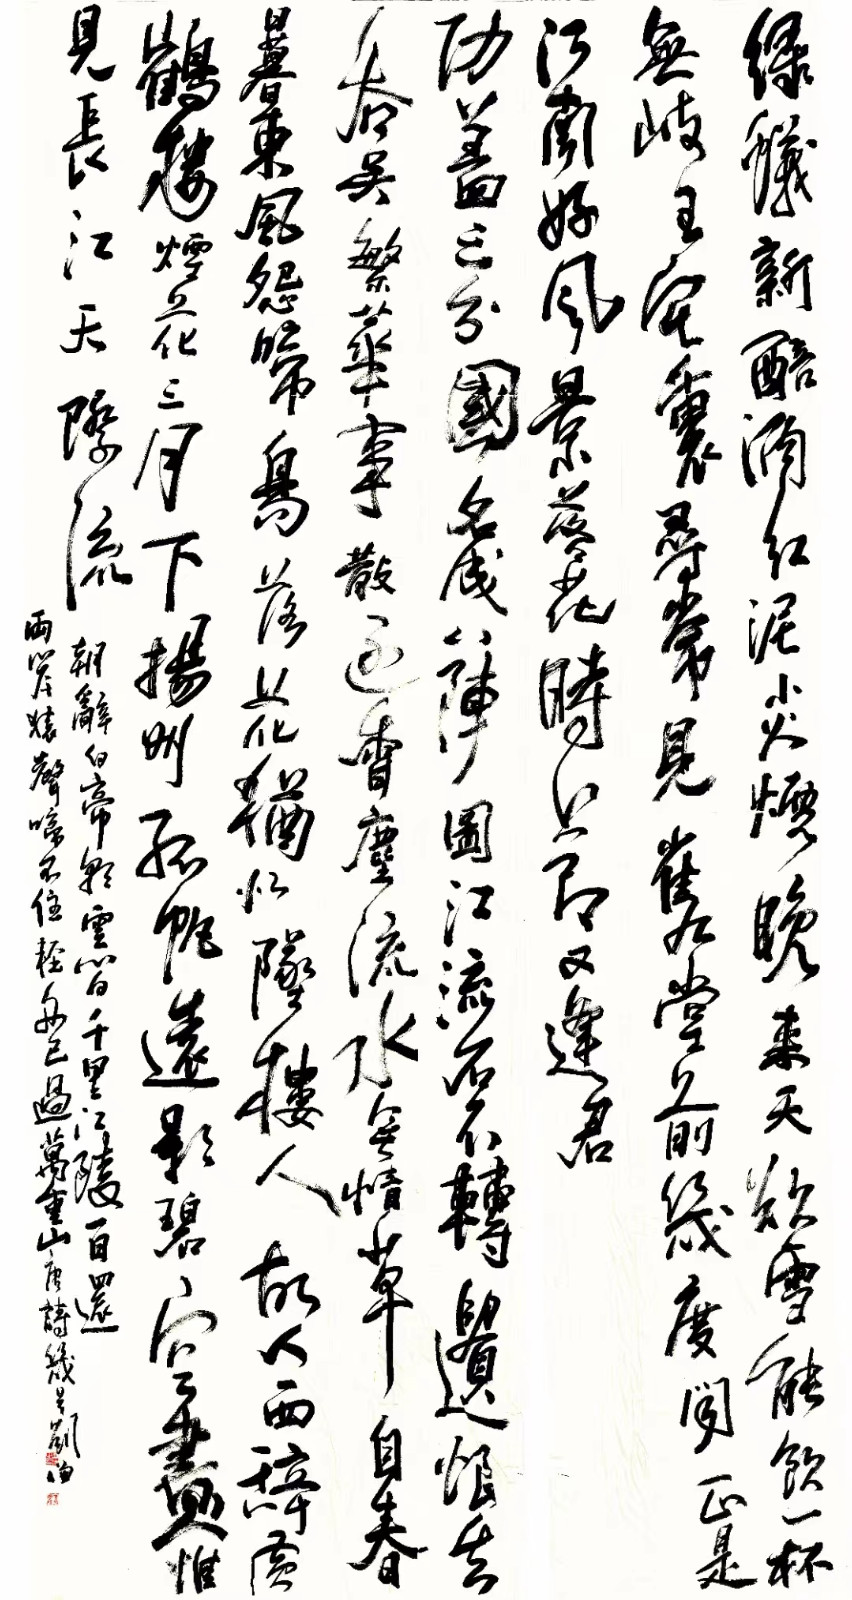 綠蟻新醅酒紅泥小火爐晚來天欲雪能飲一杯
無岐王宅裏尋常見崔九堂前幾度聞正是
江南好風景落花時節又逢君
功蓋三分國名成八陣圖江流石不轉遺恨失
吞吳繁華事散逐香塵流水無情草自春
日暮東風怨啼鳥落花猶似墜樓人故人西辭黃
鶴樓煙花三月下揚州孤帆遠影碧空盡惟
見長江天際流
朝辭白帝彩雲間千里江陵一日還
兩岸猿聲啼不住輕舟已過萬重山唐詩幾首劉